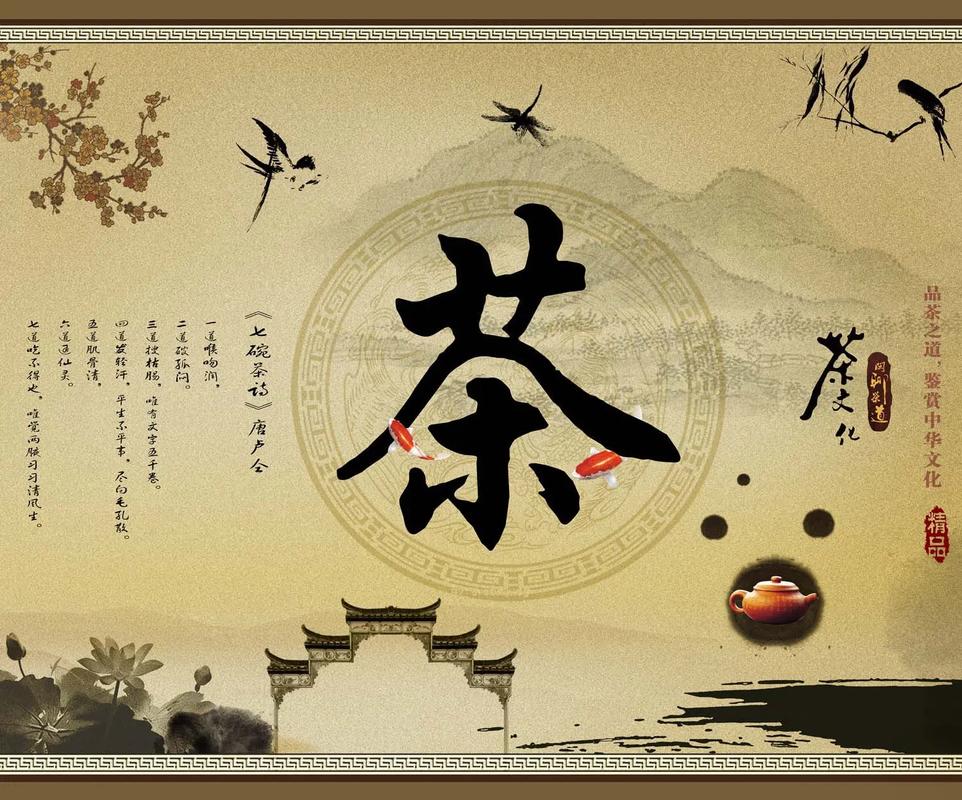 品茶之道，鉴赏中华文化
精品
茶文化
茶
《七碗茶诗》唐卢仝
一道喉吻润，
二道破孤闷。
三道搜枯肠，唯有文字五千卷。
四道发轻汗，平生不平事，尽向毛孔散。
五道肌骨清，
六道通仙灵。
七道吃不得也，唯觉两腋习习清风生。